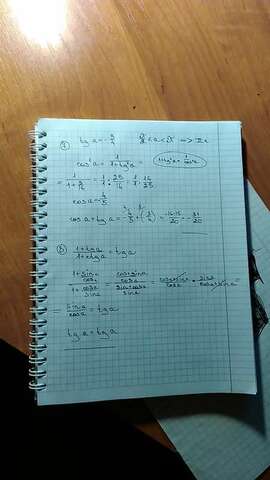 ⑦ tg a = -3/4   π/2 < a < π => II ч
cos²a = 1/(1+tg²a) =   1+tg²a = 1/cos²a
= 1/(1+9/16) = 1/1 : 25/16 = 1/1 · 16/25
cos a = -4/5
cos a + tg a = -4/5 + (-3/4) = (-16-15)/20 = -31/20
⑧ (1+tg a)/(1+ctg a) = tg a
(1+sin a/cos a)/(1+cos a/sin a) = ((cos a+sin a)/cos a)/((sin a+cos a)/sin a) = (cos a+sin a)/cos a · sin a/(cos a+sin a) =
= sin a/cos a = tg a
tg a = tg a